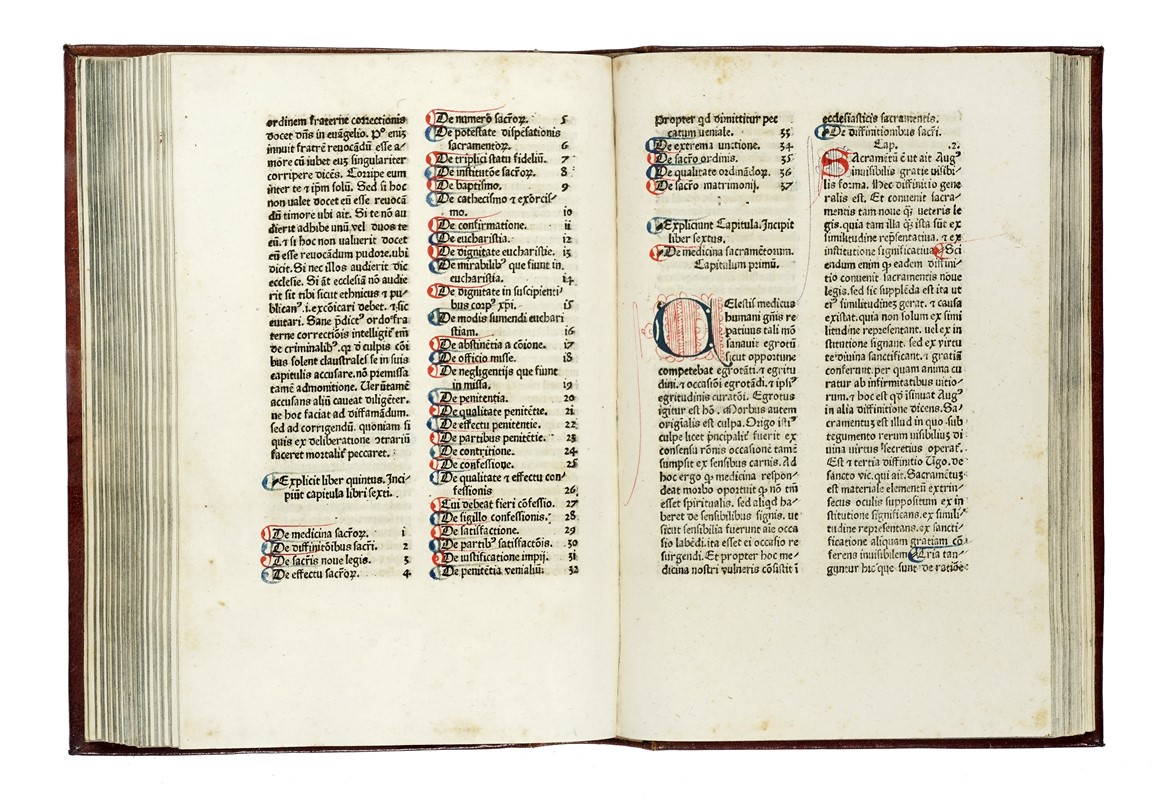 ordinem fraterne correctionis
docet dñs in euãgelio. Pº eniȝ
innuit fratrẽ reuocãdũ esse a/
more cũ iubet euȝ singulariter
corripere dicẽs. Corripe eum
inter te ⁊ ip̃m solũ. Sed si hoc
non ualet docet eũ esse reuocã
dũ timore ubi ait. Si te nõ au
dierit adhibe unũ vel duos te
cũ. ⁊ si hoc non ualuerit docet
eũ esse reuocãdum pudore. ubi
dicit. Si nec illos audierit dic
ecclesie. Si ãt ecclesiã nõ audie
rit sit tibi sicut ethnicus ⁊ pu/
blicanꝰ .i. excõicari debet. ⁊ sic
euitari. Sane p̃dictꝰ ordo fra
terne correctiõis intelligit̃ em̃
de criminalibꝰ. qꝛ ð culpis cõi
bus solent claustrales se in suis
capitulis accusare. nõ premissa
tamẽ admonitione. Uerũtamẽ
accusans aliũ caueat diligẽter.
ne hoc faciat ad diffamãdum.
sed ad corrigendũ. quoniam si
quis ex deliberatione ↄtrariũ
faceret mortalit̃ peccaret.
Explicit liber quintus. Inci/
piũt capitula libri sexti.
De medicina sacroꝝ. 1
De diffinitõibus sacr̃i. 2
De sacr̃is noue legis. 3
De effectu sacroꝝ. 4
De numero sacroꝝ. 5
De potestate dispẽsationis
sacramentoꝝ. 6
De triplici statu fideliũ. 7
De institutõe sacroꝝ. 8
De baptismo. 9
De cathecismo ⁊ exorcis/
mo. 10
De confirmatione. 11
De eucharistia. 12
De dignitate eucharistie. 13
De mirabilibꝰ que fiunt in
eucharistia. 14
De dignitate in suscipientiꝰ
bus corpꝰ xp̃i. 15
De modis sumendi euchari
stiam. 16
De abstinẽtia a cõione. 17
De officio misse. 18
De negligentijs que fiunt
in missa. 19
De penitentia. 20
De qualitate penitẽtie. 21
De effectu penitẽtie. 22
De partibus penitẽtie. 23
De contritione. 24
De confessione. 25
De qualitate ⁊ effectu con/
fessionis 26
Cui debeat fieri cõfessio. 27
De sigillo confessionis. 28
De satisfactione. 29
De partibꝰ satisfactõis. 30
De iustificatione impij. 31
De penitẽtia venialiũ. 32
propter qd dimittitur pec
catum ueniale. 33
De extrema unctione. 34
De sacro ordinis. 35
De qualitate ordinãdoꝝ. 36
De sacro matrimonij. 37
Expliciunt Capitula. Incipit
liber sextus.
De medicina sacramẽtorum.
Capitulum primũ.
CElestis medicus
humani gñis re
patiuus tali mõ
sanauit egrotũ
sicut opportune
competebat egrotãti. ⁊ egritu
dini. ⁊ occasiõi egrotãdi. ⁊ ip̃iꝰ
egritudinis curatõi. Egrotus
igitur est hõ. Morbus autem
originalis est culpa. Origo istiꝰ
culpe licet p̃ncipalit̃ fuerit ex
consensu rõnis occasionẽ tamẽ
sumpsit ex sensibus carnis. Ad
hoc ergo ꝙ medicina respon/
deat morbo oportuit ꝙ nõ tm̃
esset spiritualis. sed aliqd ha/
beret de sensibilibus signis. ut
sicut sensibilia fuerunt aie occa
sio labẽdi. ita esset ei occasio re
surgendi. Et propter hoc me/
dicina nostri vulneris cõsistit ĩ
ecclesiasticis sacramentis.
De diffinitionibus sacr̃i.
Cap. .2.
SAcramẽtũ ẽ ut ait Augꝰ
inuisibilis gratie uisibi/
lis forma. Hec diffinitio gene
ralis est. Et conuenit sacra/
mentis tam noue q̃ʒ ueteris le
gis. quia tam illa q̃ʒ ista sũt ex
similitudine rep̃sentatiua. ⁊ ex
institutione significatiua. Sci
endum enim ꝙ eadem diffini/
tio conuenit sacramentis noue
legis. sed sic supplẽda est ita ut
eiꝰ similitudineȝ gerat. ⁊ causa
existat. quia non solum ex simi
litudine representant. uel ex in
stitutione signant. sed ex virtu
te diuina sanctificant. ⁊ gratiã
conferunt. per quam anima cu
ratur ab infirmitatibus uitio/
rum. ⁊ hoc est qđ ĩsinuat Augꝰ
in alia diffinitione dicens. Sa/
cramentũ est illud in quo sub
tegumento rerum uisibiliuȝ di
uina virtus secretius operat̃.
Est ⁊ tertia diffinitio Ugo. de
sancto vic. qui ait. Sacramẽtuȝ
est materiale elementũ extrin/
secus oculis suppositum ex in
stitutione significans. ex simili/
tudine representans. ex sancti/
ficatione aliquam gratiam cõ/
ferens inuisibilem. Tria tan/
guntur hic que sunt de ratiõe